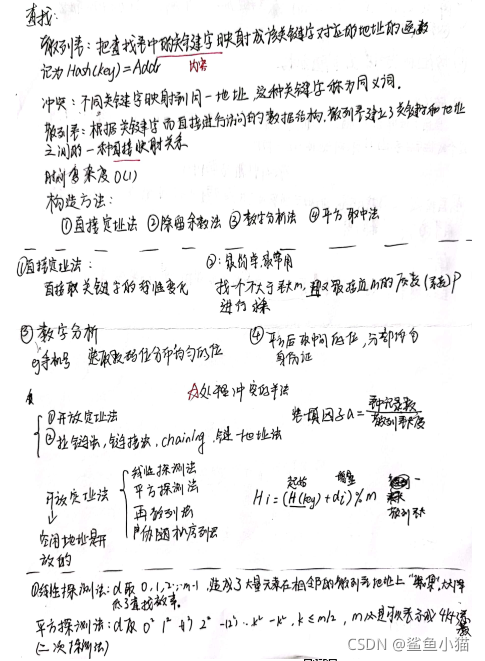 查找
散列表：把查找表中的关键字映射成该关键字对应的地址的函数
记为Hash(key)=Addr 内容
冲突：不同关键字映射到同一地址，这种关键字称为同义词.
散列表：根据关键字而直接进行访问的数据结构.散列表建立了关键字和地址
之间的一种直接映射关系
时间复杂度O(1)
构造方法：
①直接定址法 ②除留余数法 ③数字分析法 ④平方取中法
①直接定址法：
直接取关键字的线性变化
②：最简单,最常用
找一个不大于表长m, 但又最接近m的质数(素数)P
进行求
③数字分析
eg手机号 选取数码位分布均匀的位
④平方后取中间的位,分布均匀
身份证
处理冲突的方法
①开放定址法
②拉链法,链接法,chaining,链地址法
装填因子α=表中记录数/散列表长度
开放定址法
↓
空闲地址是开
放的
线性探测法
平方探测法
再散列法
伪随机序列法
起始 增量
Hi=(H(key)+di)%m
散列表长
①线性探测法：d取0,1,2…m-1, 造成了大量元素在相邻的散列表地址上"聚集",大大降
低了查找效率.
平方探测法：d取0² 1² -1² 2² -2² … k² -k², k≤m/2, m必须可以表示成4k+3
(二次探测法)
CSDN @鲨鱼小猫